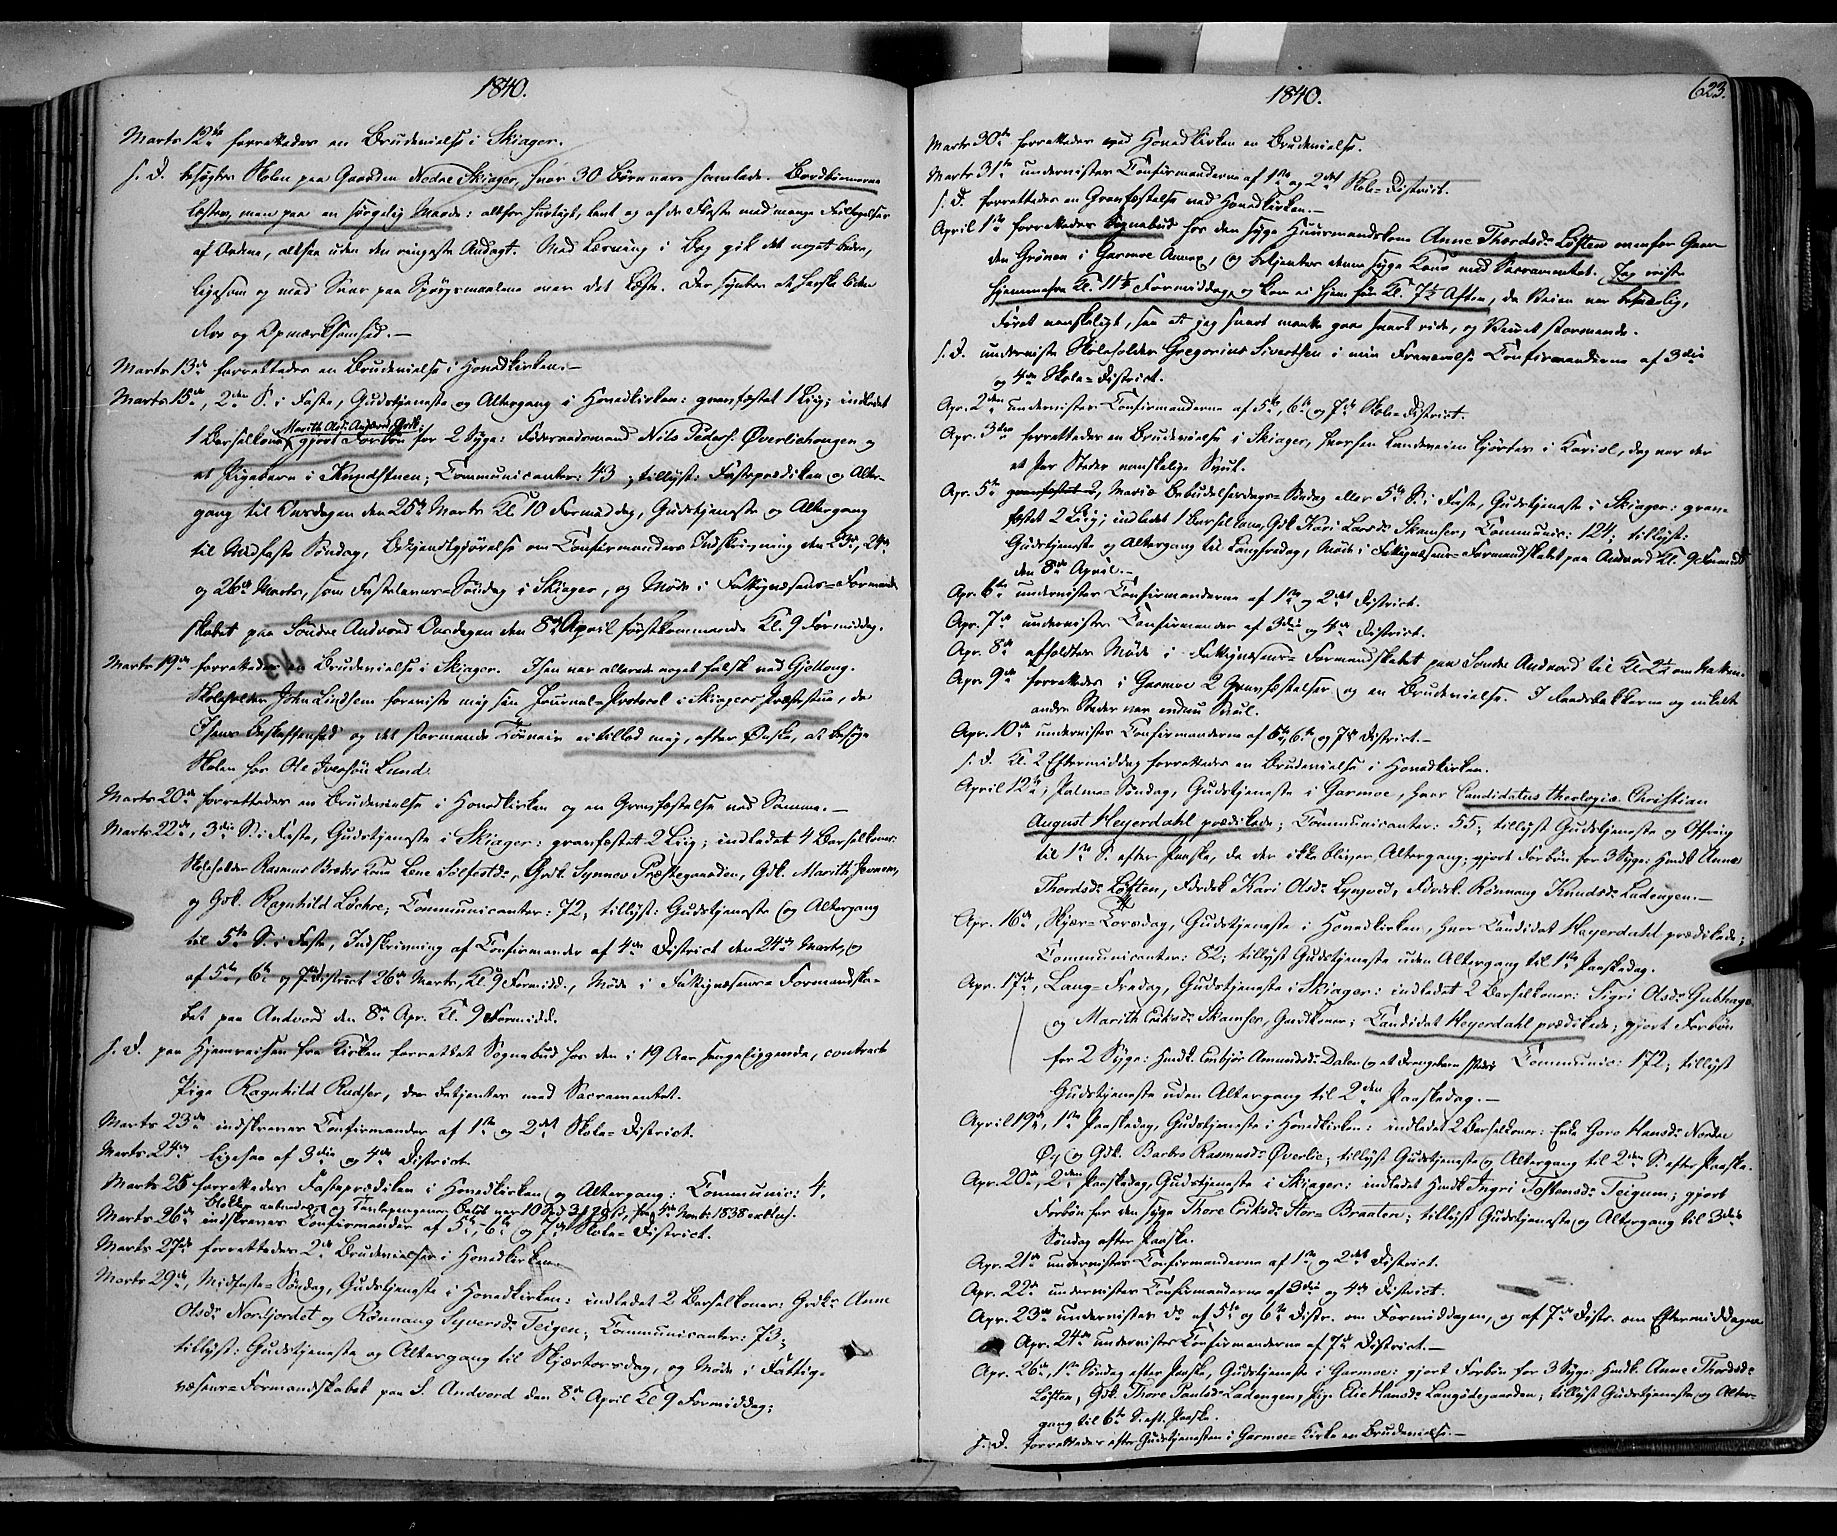 1840.
Marts 12te forrettedes en Brudevielse i Skiager.
s. D. besøgtes Skolen paa Gaarden Nedre Skiager, hvor 30 Børn vare samlede. Bordbønnerne
læstes, men paa en sørgelig Maade: altfor hurtigt, lavt og af de Fleste med mange Feiltagelser
af Ordene, altsaa uden den ringeste Andagt. Med Læsning i Bog gik det noget bedre,
ligesom og med Svar paa Spørgsmaalene over det Læste. Der syntes at herske liden
Orden og Opmærksomhed.—
Marts 13de forrettedes en Brudevielse i Hovedkirken.—
Marts 15de, 2den S. i Faste, Gudstjeneste og Altergang i Hovedkirken: gravfæstet 1 Liig; indledet
1 Barselkone, Marith Olsdr Andvord, Grdk.;
gjort Forbøn for 2 Syge: Føderaadsmand Nils Peders. Øverliehaugen og
et Pigebarn i Kvandstuen; Communicanter: 43; tillyst: Fasteprædiken og Alter-
gang til Onsdagen den 25de Marts Kl. 10 Formiddag, Gudstjeneste og Altergang
til Midfaste Søndag, Bekjendtgjørelse om Confirmanders Indskrivning den 23de, 24de
og 26de Marts, som Fastelavns-Søndag i Skiager, og Møde i Fattigvæsens-Formand-
skabet paa Søndre Andvord Onsdagen den 8de April førstkommende Kl. 9 Formiddag.
Marts 19de forrettedes en Brudevielse i Skiager. Isen var allerede noget falsk ved Gjellong.
Skoleholder John Lindsem foreviste mig sin Journal-Protocol i Skiagers Præstestue, da
Isens Beskaffenhed og det stormende Tøveir ei tillod mig, efter Ønske, at besøge
Skolen hos Ole Iversøn Lund.
Marts 20de forrettedes en Brudevielse i Hovedkirken og en Gravfæstelse ved Samme.—
Marts 22de, 3die S. i Faste, Gudstjeneste i Skiager: gravfæstet 2 Liig; indledet 4 Barselkoner:
Skoleholder Rasmus Bredes Kone Lene Tølfestdr, Grdk. Synnev Præstegaarden, Gdk. Marith Jevnem,
og Gdk. Ragnhild Løchre; Communicanter: 72; tillyst: Gudstjeneste og Altergang
til 5te S. i Faste, Indskrivning af Confirmander af 4de District den 24de Marts, og
af 5te, 6te og 7de District 26de Marts, Kl. 9 Formidd., Møde i Fattigvæsens-Formandska-
bet paa Andvord den 8de Apr. Kl. 9 Formidd.
s. D. paa Hjemreisen fra Kirken forrettet Sognebud hos den i 19 Aar sengeliggende, contracte
Pige Ragnhild Rudser, der betjentes med Sacramentet.
Marts 23de indskreves Confirmander af 1ste og 2det Skole-District.
Marts 24de ligesaa af 3die og 4de District.
Marts 25 forrettedes Fasteprædiken i Hovedkirken og Altergang: Communic: 4.
Marts 26de indskreves Confirmander af 5te, 6te og 7de Skole-District.
Marts 27de forrettedes 2de Brudevielser i Hovedkirken.
Marts 29de, Midfaste-Søndag, Gudstjeneste i Hovedkirken: indledet 2 Barselkoner: Grdkr Anne
Olsdr Nordfjordet og Rønnaug Syversdr Teigen; Communicanter: 73;
tillyst: Gudstjeneste og Altergang til Skjærtorsdag, og Møde i Fattig-
væsens-Formandskabet paa S. Andvord den 8de April Kl 9 Formiddag;
1840.
623.
Marts 30te forrettedes ved Hovedkirken en Brudevielse.
Marts 31te undervistes Confirmanderne af 1ste og 2det Skole-District.
s. D. forrettedes en Gravfæstelse ved Hovedkirken.—
April 1ste forrettedes Sognebud hos den syge Huusmandskone Anne Thordsdr Løften ovenfor Gaar-
den Grønen i Garmoe Annex, og betjentes denne syge Kone med Sacramentet. Jeg reiste
hjemmefra Kl. 11½ Formiddag, og kom ei hjem før Kl. 7½ Aften, da Veien var besværlig,
Føret vanskeligt, saa at jeg snart maatte gaae snart ride, og Veiret stormende.
s. D. underviste Skoleholder Gregorius Sivertsen i min Fraværelse Confirmanderne af 3die
og 4de Skole-District.
Apr. 2den undervistes Confirmanderne af 5te, 6te og 7de Skole-District.
Apr. 3die forrettedes en Brudevielse i Skiager, hvorhen Landeveien kjørtes i Kariol, dog var der
et Par Steder vanskelige Svul.
Apr. 5te Mariæ Bebudelsesdags-Søndag eller 5te S. i Faste, Gudstjeneste i Skiager: grav-
fæstet 2 Liig; indledet 1 Barselkone, Gdk Kari Larsdr Skamser, Communic: 124; tillyst:
Gudstjeneste og Altergang til Langfredag, Møde i Fattigvæsens-Formandskabet paa Andvord Kl. 9 Formidd
den 8de April.—
Apr. 6te undervistes Confirmanderne af 1ste og 2det District.
Apr. 7de undervistes Confirmander af 3die og 4de District.
Apr. 8de afholdtes Møde i Fattigvæsens-Formandskabet paa Søndre Andvord til Kl. 2½ om Natten.
Apr. 9de forrettedes i Garmoe 2 Gravfæstelser og en Brudevielse. I Raadsbakkerne og enkelte
andre Steder var endnu Svul.
Apr. 10de undervistes Confirmanderne af 5te, 6te og 7de District.—
s. D. Kl. 2 Eftermiddag forrettedes en Brudevielse i Hovedkirken.
April 12te, Palme-Søndag, Gudstjeneste i Garmoe, hvor Candidatus theologiæ Christian
August Heyerdahl prædikede; Communicanter: 55; tillyst Gudstjeneste og Offring
til 1ste S. efter Paaske, da der ikke bliver Altergang; gjort Forbøn for 3 Syge: Hmdk Anne
Thordsdr Løften, Fdrdsk Kari Olsdr Lyngved, Fdrdsk. Rønnaug Knudsdr Ladengen.—
Apr. 16de, Skjær-Torsdag, Gudstjeneste i Hovedkirken, hvor Candidat Heyerdahl prædikede;
Communicanter: 82; tillyst Gudstjeneste uden Altergang til 1ste Paaskedag.
Apr. 17de, Lang-Fredag, Gudstjeneste i Skiager: indledet 2 Barselkoner: Sigri Olsdr Gubhage
og Marith Eriksdr Skamser, Grdkoner; Candidat Heyerdahl prædikede; gjort Forbøn
for 2 Syge: Hmdk. Embjør Amundsdr Dalen og et Drengebarn Communic: 172; tillyst
Gudstjeneste uden Altergang til 2den Paaskedag.—
April 19de, 1ste Paaskedag, Gudstjeneste i Hovedkirken: indledet 2 Barselkoner: Enke Goro Hansdr Nordre
Ø., og Gdk. Barbro Rasmusdr Øverlie; tillyst Gudstjeneste og Altergang til 2den S. efter Paaske.
Apr. 20de, 2den Paaskedag, Gudstjeneste i Skiager: indledet Hmdk Ingri Tostensdr Teigum; gjort
Forbøn for den syge Thore Eriksdr Stor-Braaten; tillyst Gudstjeneste og Altergang til 3die
Søndag efter Paaske.
Apr. 21de undervistes Confirmanderne af 1ste og 2det District.
Apr. 22de undervistes Confirmanderne af 3die og 4de District.
Apr. 23de undervistes do af 5te og 6te Distr. om Formiddagen, og af 7de Distr. om Eftermiddagen
Apr. 24de undervistes Confirmanderne af 7de District.—
Apr. 26de, 1ste Søndag efter Paaske, Gudstjeneste i Garmoe: gjort Forbøn for 3 Syge: Hmdk. Anne Thordsdr
Løften, Gdk. Thore Paulsdr Ladengen, Pige Eli Hansdr Langødegaarden; tillyst Gudstjeneste og Alter-
gang til 6te S. eft. Paaske.
s. D. forrettedes efter Gudstjenesten i Garmoe-Kirke en Brudevielse.—